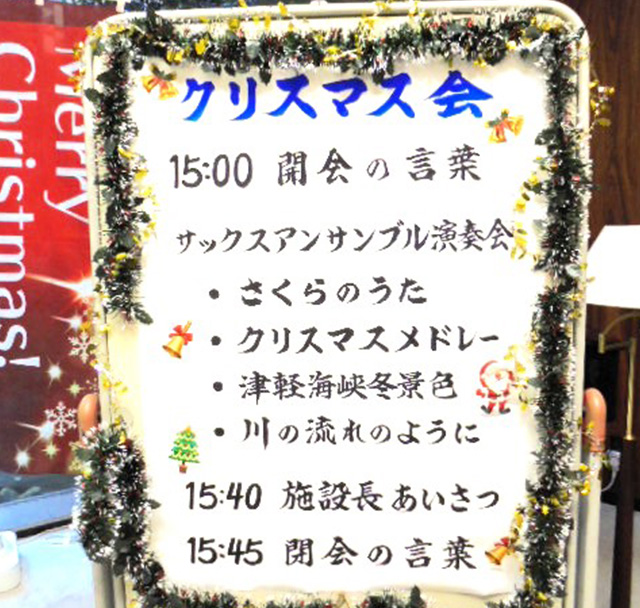 Merry
Christmas!
クリスマス会
15:00 開会の言葉
サックスアンサンブル演奏会
・さくらのうた
・クリスマスメドレー
・津軽海峡冬景色
・川の流れのように
15:40 施設長あいさつ
15:45 閉会の言葉